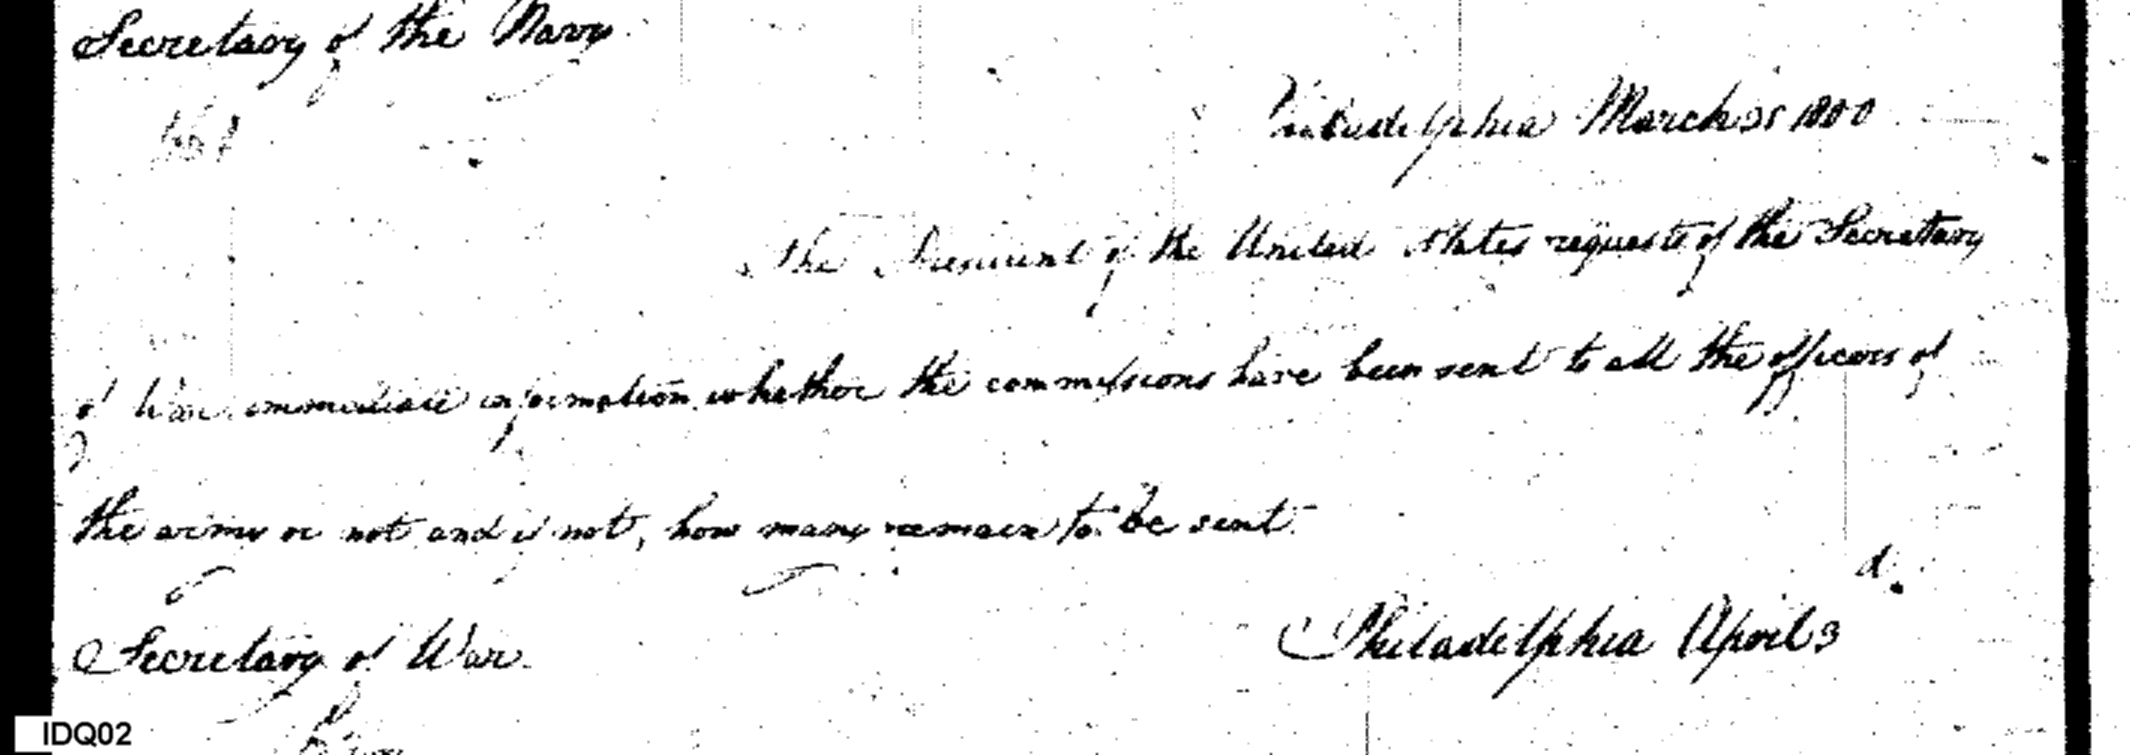 Secretary of the Navy
Philadelphia March 1800
The President of the United States requests of the Secretary
of War immediate information whether the commissions have been sent to all the officers of
the army or not and if not, how many remain to be sent.
Secretary of War
Philadelphia April 3
IDQ02